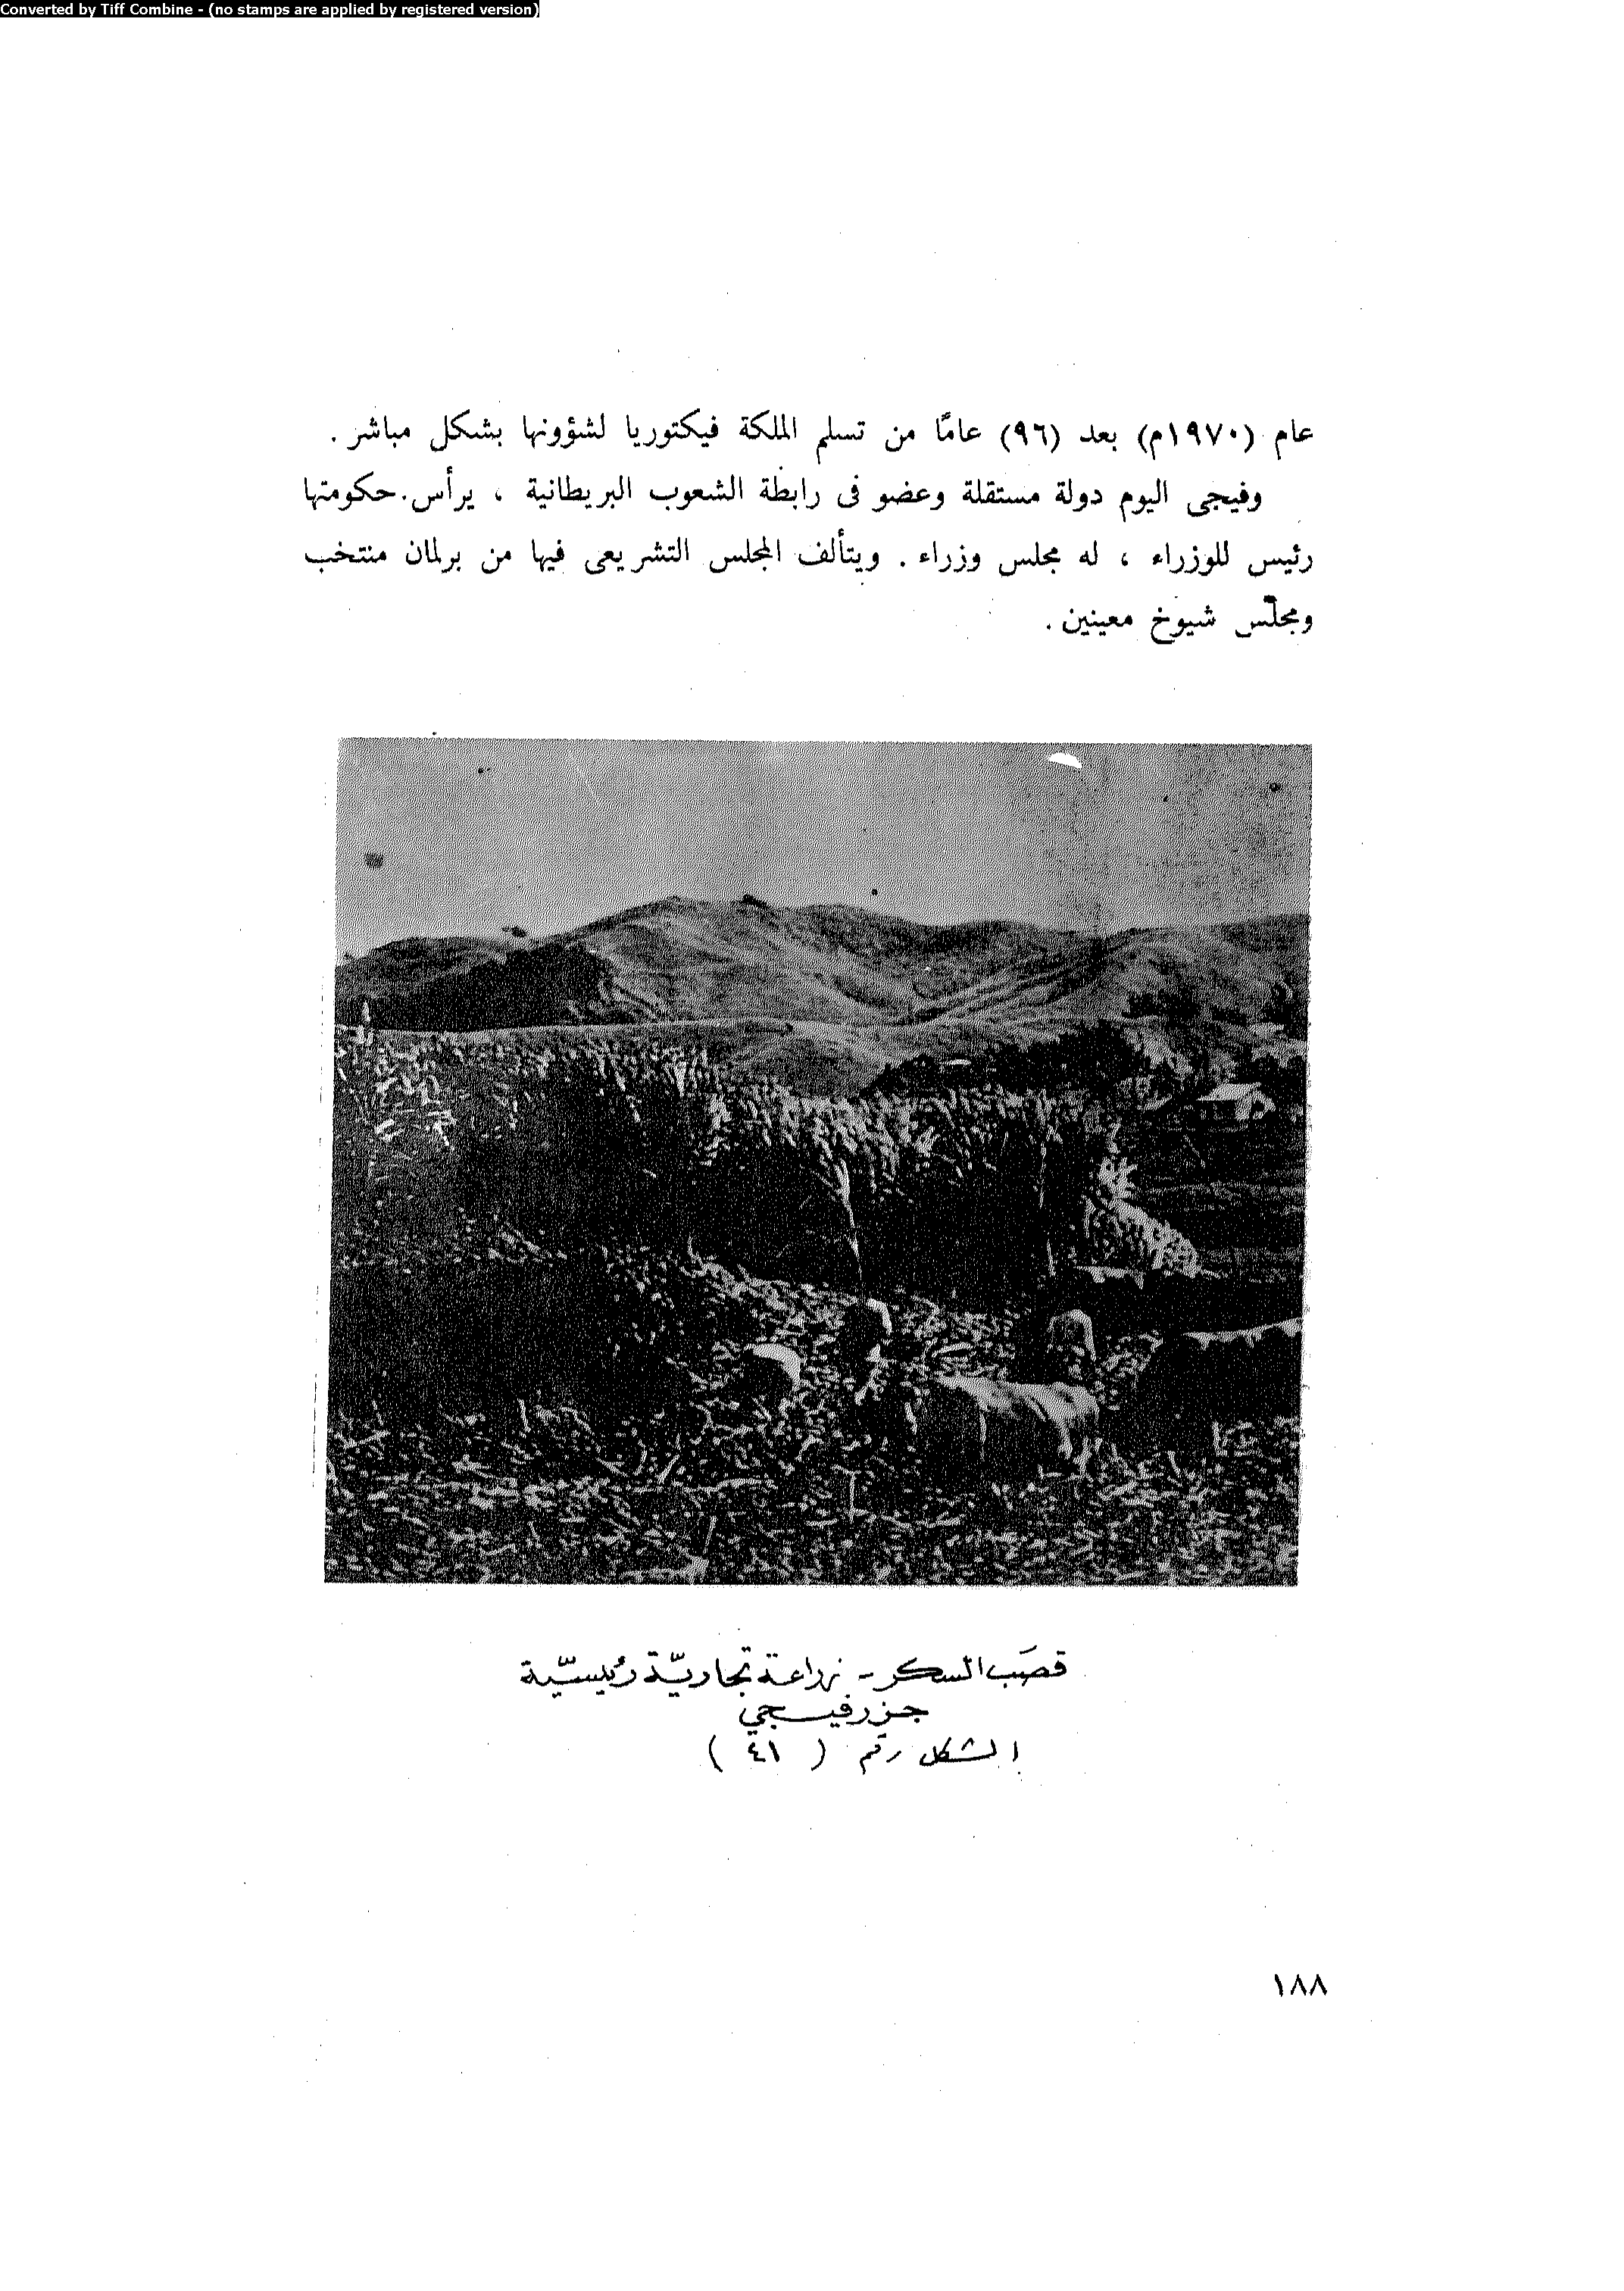 Converted by Tiff Combine - (no stamps are applied by registered version)
عام (١٩٧٠م) بعد (٩٦) عامًا من تسلم الملكة فيكتوريا لشؤونها بشكل مباشر .
وفيجى اليوم دولة مستقلة وعضو فى رابطة الشعوب البريطانية ، يرأس حكومتها
رئيس للوزراء ، له مجلس وزراء . ويتألف المجلس التشريعى فيها من برلمان منتخب
ومجلس شيوخ معينين .
قصَب السكر - زراعة تجاريّة رئيسيّة
جزر فيجي
الشكل رقم ( ٤١ )
١٨٨